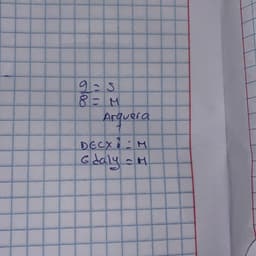 9 = S
8 = M
Arquera
1
DECXI = M
Gdaly = M